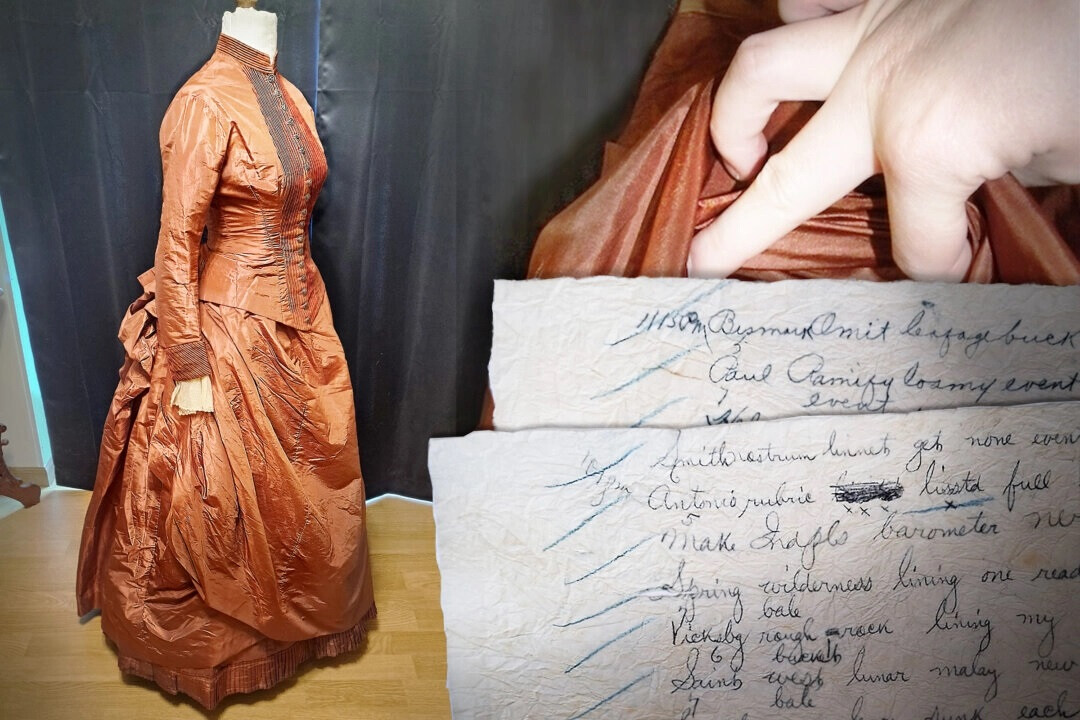 1113 Pm Bismark Omit leafage buck
Paul Ramify loamy event
event
Smith nostrum linnet get none even
Antonio rubric lisstd full
Make Indpls barometer
Spring wilderness lining one read
bale
Vicksbg rough rock lining my
6 bucksh
Saint west lunar malay new
7 bale
each